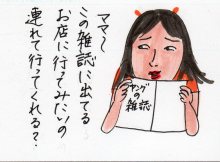 ママ〜
この雑誌に出てる
お店に行ってみたいの
連れて行ってくれる?
ヤングの雑誌